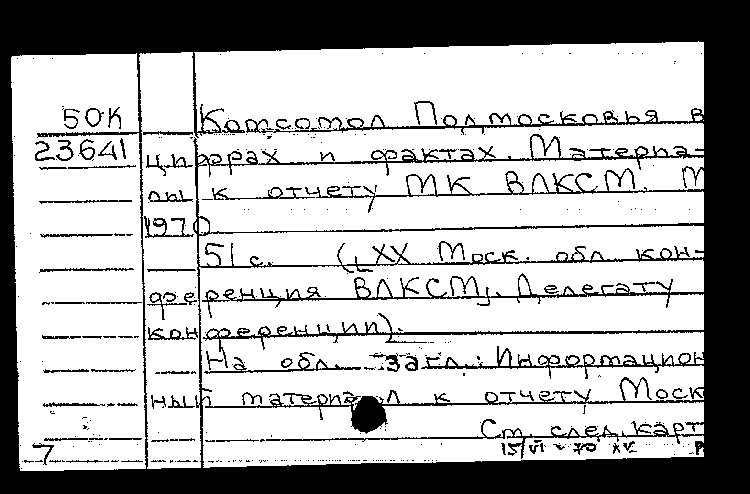 50К Комсомол Подмосковья в
23641 цифрах и фактах. Материа-
лы к отчету МК ВЛКСМ. М
1970
51 с. ([XX Моск. обл кон-
ференция ВЛКСМ]. Делегату
конференции).
На обл. загл.: Информацион
ный материал к отчету Моск
Ст. след. карт
7 15/VI - 70